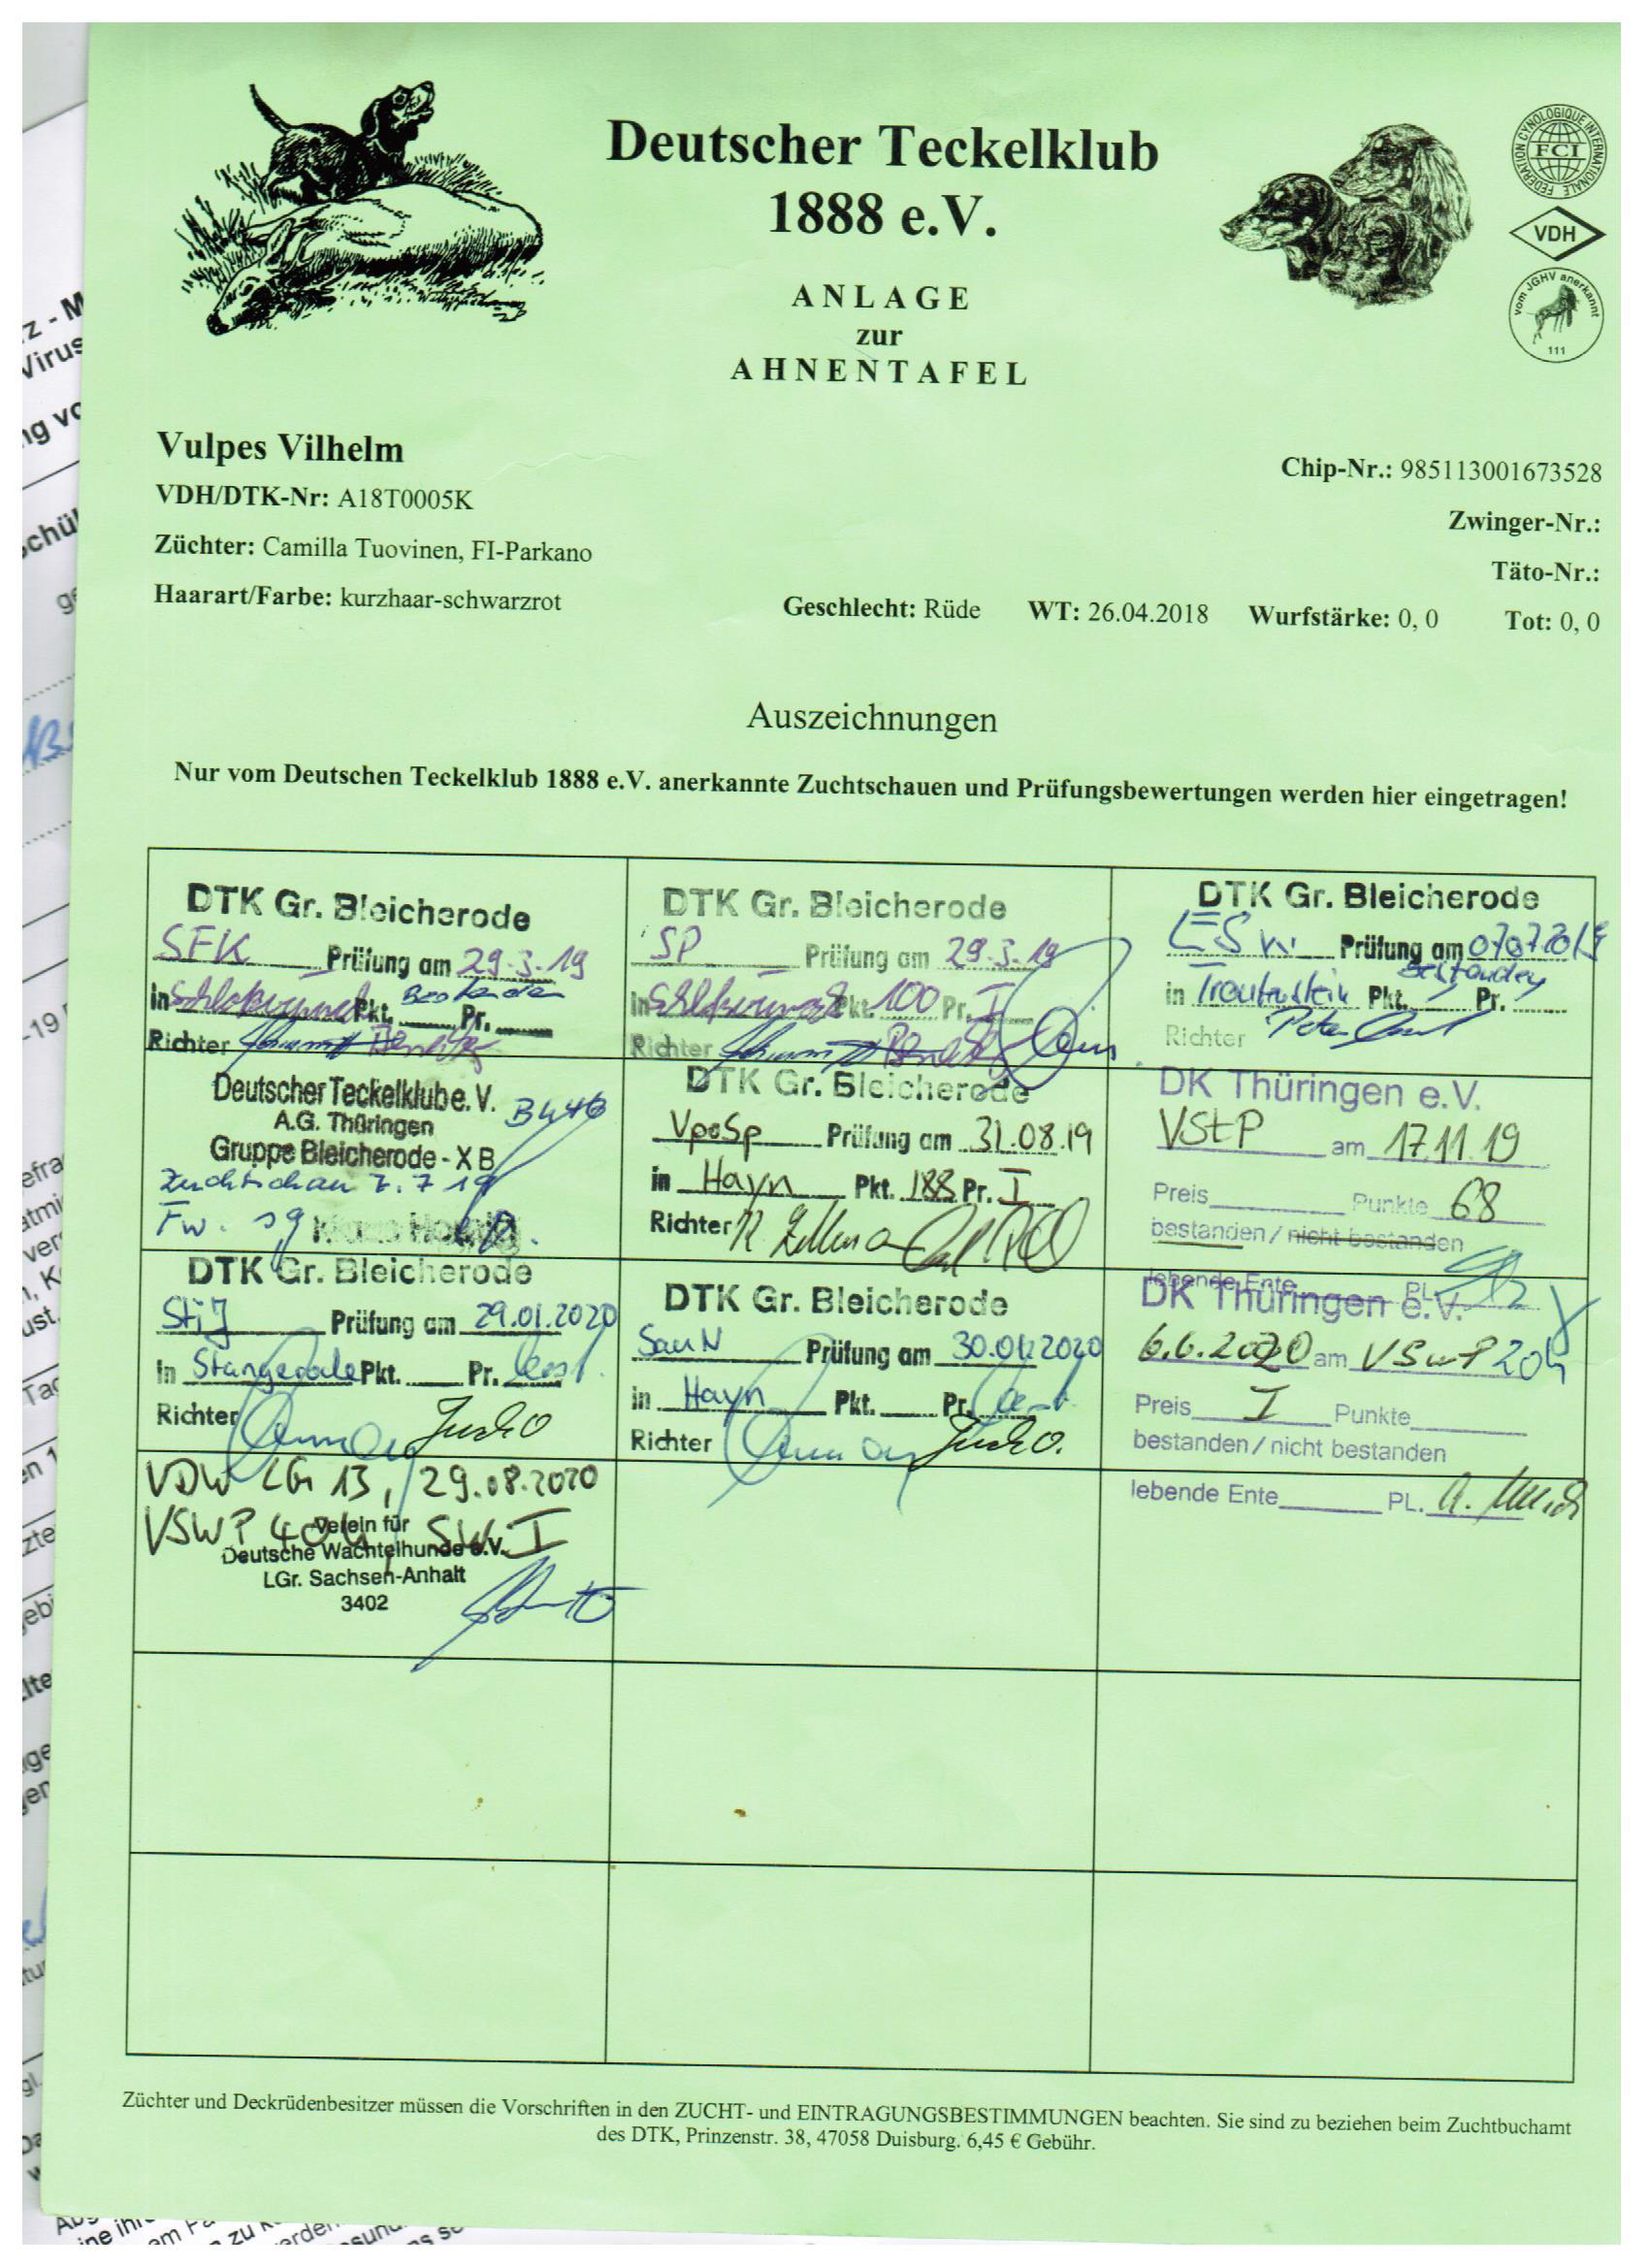 Deutscher Teckelklub
1888 e.V.
ANLAGE
zur
AHNENTAFEL
FEDERATION CYNOLOGIQUE INTERNATIONALE
FCI
VDH
vom JGHV anerkannt
111
Vulpes Vilhelm
VDH/DTK-Nr: A18T0005K
Züchter: Camilla Tuovinen, FI-Parkano
Haarart/Farbe: kurzhaar-schwarzrot
Chip-Nr.: 985113001673528
Zwinger-Nr.:
Täto-Nr.:
Geschlecht: Rüde WT: 26.04.2018 Wurfstärke: 0, 0 Tot: 0, 0
Auszeichnungen
Nur vom Deutschen Teckelklub 1888 e.V. anerkannte Zuchtschauen und Prüfungsbewertungen werden hier eingetragen!
DTK Gr. Bleicherode
SFK Prüfung am 29.3.19
in Pkt. Bestanden Pr.
Richter
DTK Gr. Bleicherode
SP Prüfung am 29.3.19
in Pkt. 100 Pr. I
Richter
DTK Gr. Bleicherode
Prüfung am 07.07.2019
bestanden
in Trautenstein Pkt. Pr.
Richter Peter
Deutscher Teckelklub e.V.
A.G. Thüringen
Gruppe Bleicherode - X B
Zuchtschau 7.7.19
Fw. sg
DTK Gr. Bleicherode
VpoSp Prüfung am 31.08.19
in Hayn Pkt. 188 Pr. I
Richter
DK Thüringen e.V.
VStP am 17.11.19
Preis Punkte 68
bestanden / nicht bestanden
lebende Ente PL.
DTK Gr. Bleicherode
StiJ Prüfung am 29.01.2020
in Stangerode Pkt. Pr. best.
Richter
DTK Gr. Bleicherode
SauN Prüfung am 30.01.2020
in Hayn Pkt. Pr. best.
Richter
DK Thüringen e.V.
6.6.2020 am VSwP 20h
Preis I Punkte
bestanden / nicht bestanden
lebende Ente PL.
VDW LGr 13, 29.08.2020
VSWP 40h, SW I
Verein für
Deutsche Wachtelhunde e.V.
LGr. Sachsen-Anhalt
3402
Züchter und Deckrüdenbesitzer müssen die Vorschriften in den ZUCHT- und EINTRAGUNGSBESTIMMUNGEN beachten. Sie sind zu beziehen beim Zuchtbuchamt
des DTK, Prinzenstr. 38, 47058 Duisburg. 6,45 € Gebühr.